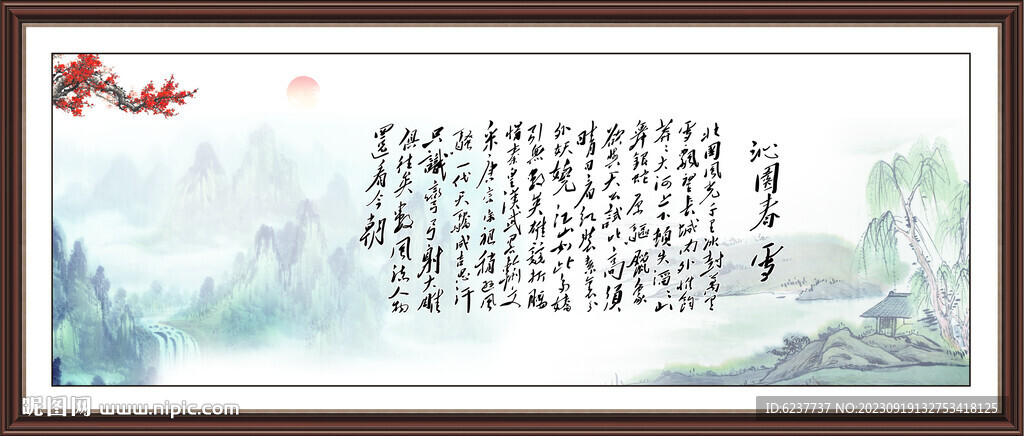 沁園春 雪
北國風光千里冰封萬里
雪飄望長城内外惟餘
莽莽大河上下頓失滔滔山
舞銀蛇原驅臘象
欲與天公試比高須
晴日看紅裝素裹分
外妖嬈江山如此多嬌
引無數英雄競折腰
惜秦皇漢武略輸文
采唐宗宋祖稍遜風
騷一代天驕成吉思汗
只識彎弓射大雕
俱往矣數風流人物
還看今朝
昵图网 www.nipic.com
ID:6237737 NO:20230919132753418125